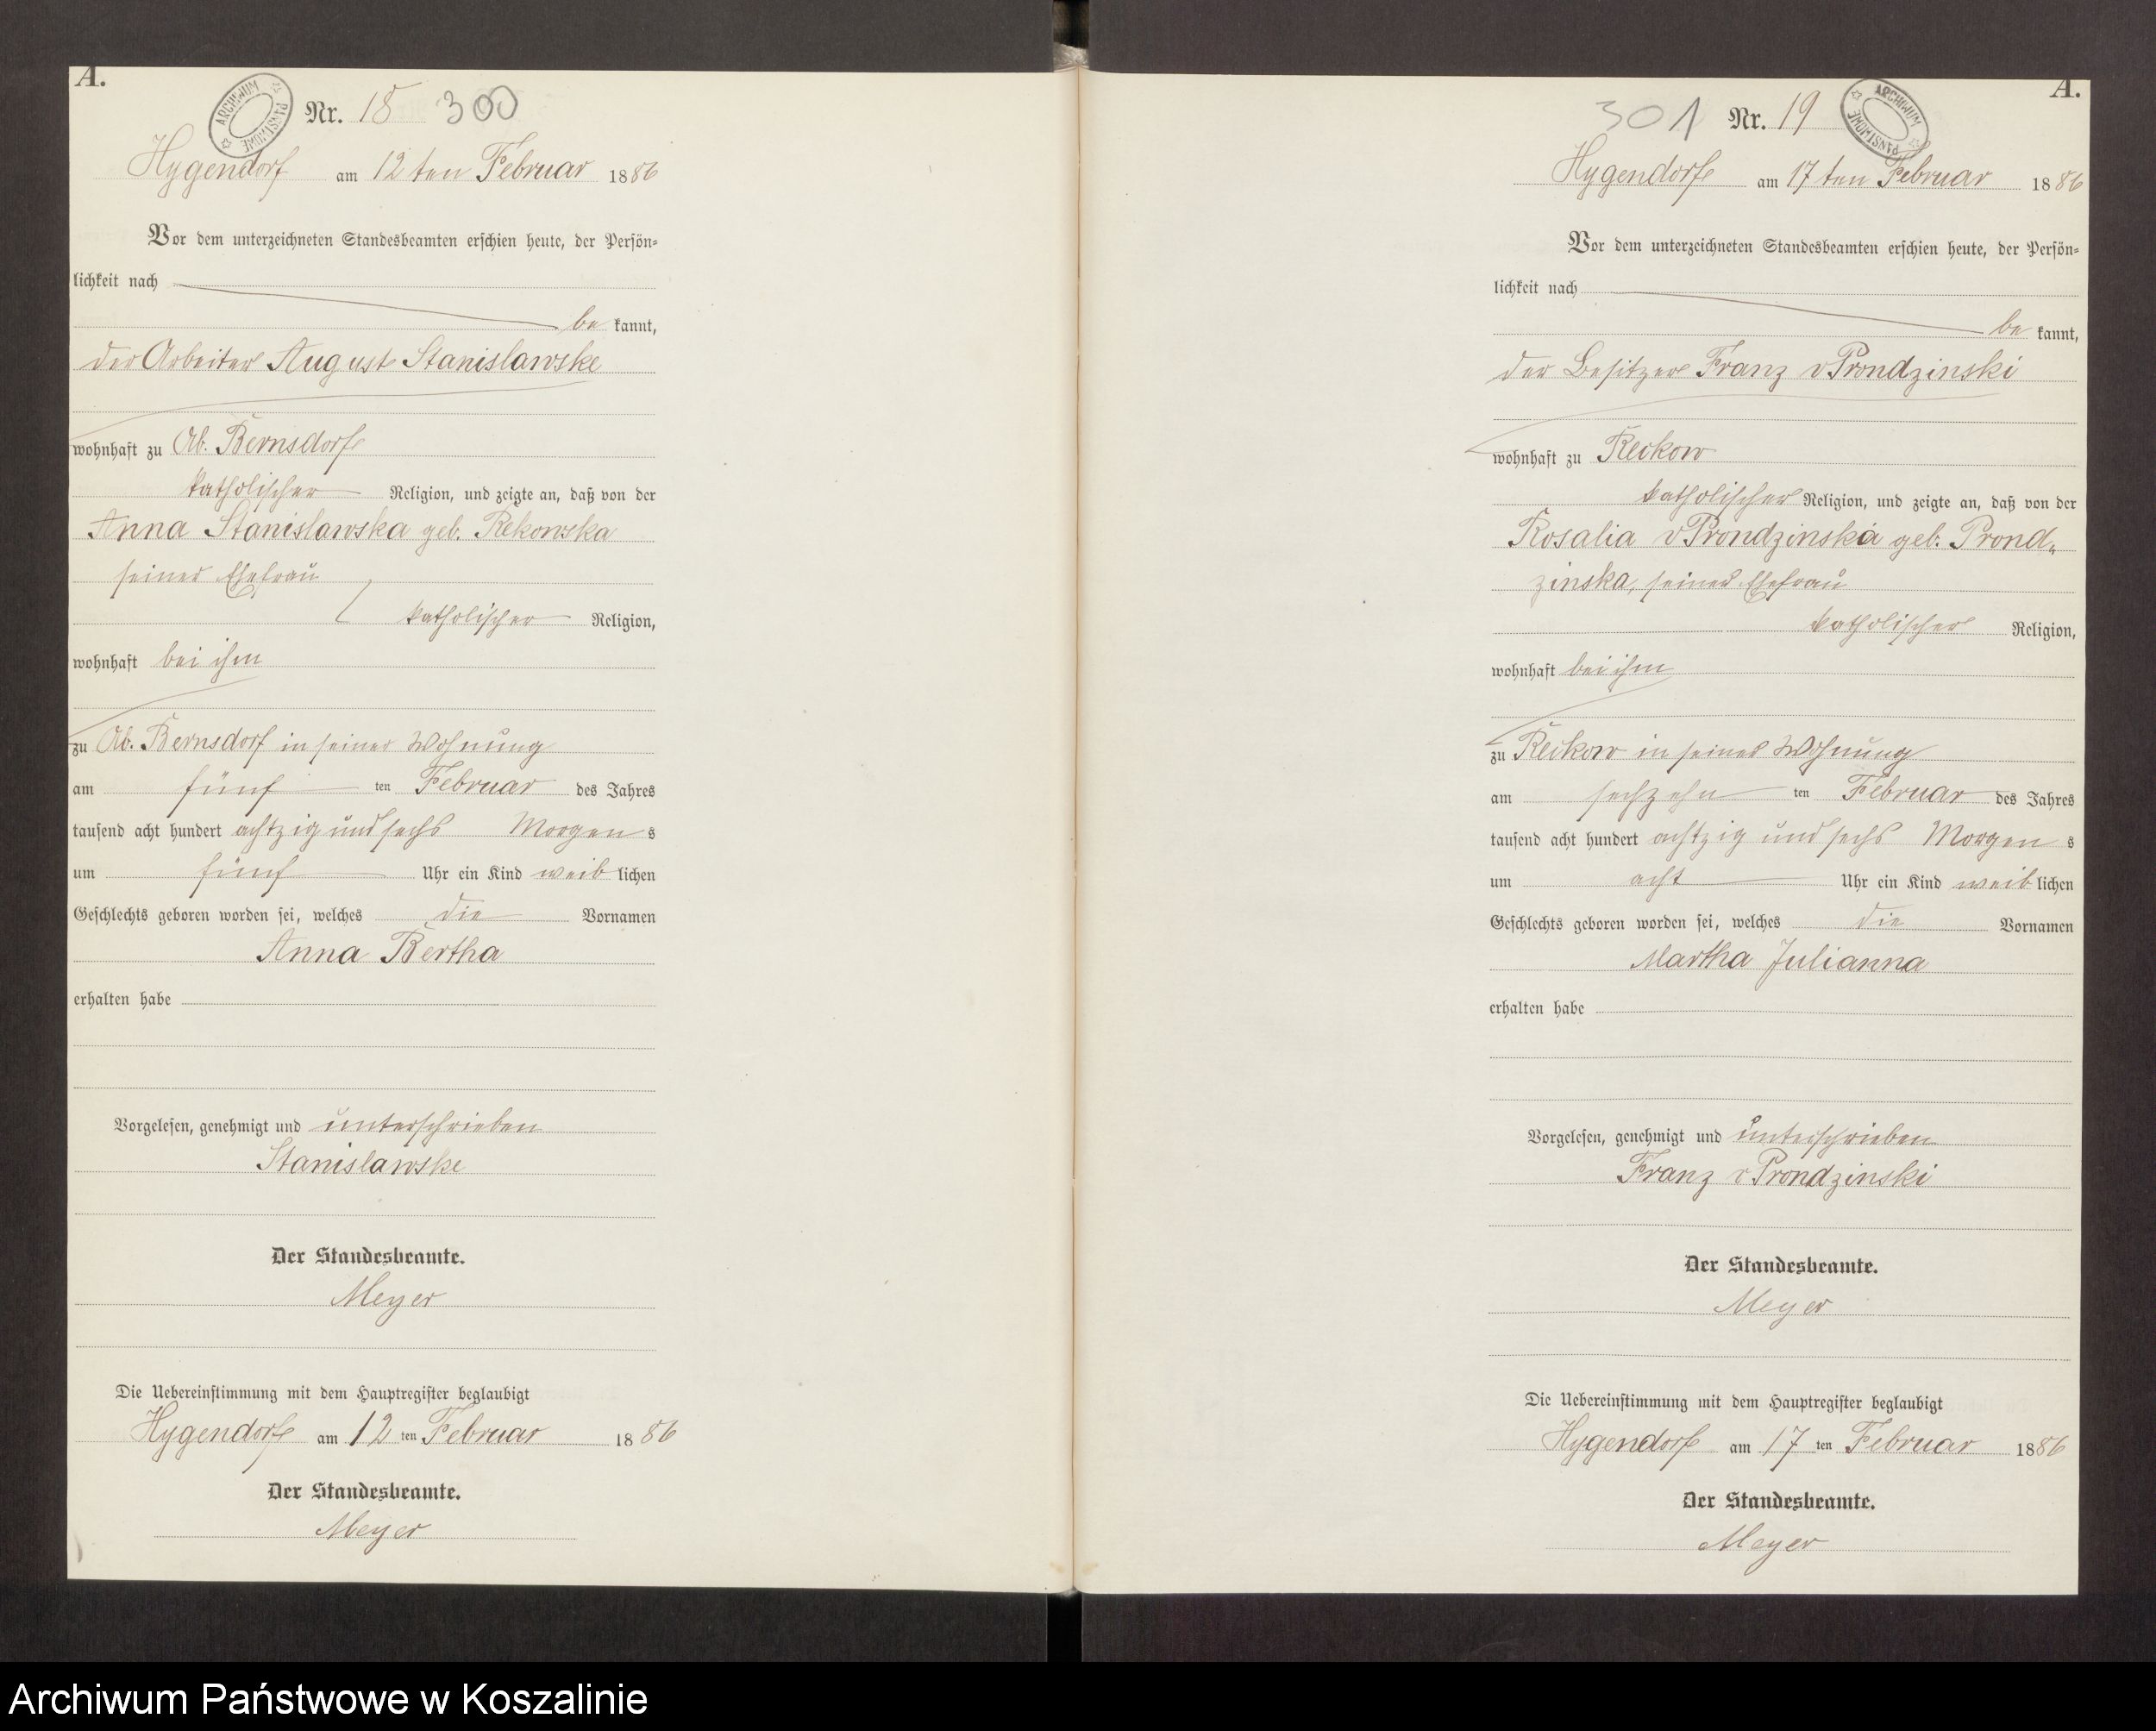 A.
ARCHIWUM PAŃSTWOWE
Nr. 18 300
Hygendorf am 12 ten Februar 1886
Vor dem unterzeichneten Standesbeamten erschien heute, der Persön=
lichkeit nach
be kannt,
der Arbeiter August Stanislawske
wohnhaft zu Ab. Bernsdorf
katholischer Religion, und zeigte an, daß von der
Anna Stanislawska geb. Rekowska
seiner Ehefrau
katholischer Religion,
wohnhaft bei ihm
zu Ab. Bernsdorf in seiner Wohnung
am fünf ten Februar des Jahres
tausend acht hundert achtzig und sechs Morgen s
um fünf Uhr ein Kind weib lichen
Geschlechts geboren worden sei, welches die Vornamen
Anna Bertha
erhalten habe
Vorgelesen, genehmigt und unterschrieben
Stanislawske
Der Standesbeamte.
Meyer
Die Uebereinstimmung mit dem Hauptregister beglaubigt
Hygendorf am 12 ten Februar 1886
Der Standesbeamte.
Meyer
A.
301 Nr. 19
ARCHIWUM PAŃSTWOWE
Hygendorf am 17 ten Februar 1886
Vor dem unterzeichneten Standesbeamten erschien heute, der Persön=
lichkeit nach
be kannt,
der Besitzer Franz v Prondzinski
wohnhaft zu Reckow
katholischer Religion, und zeigte an, daß von der
Rosalia v Prondzinska geb. Prond„
zinska, seiner Ehefrau
katholischer Religion,
wohnhaft bei ihm
zu Reckow in seiner Wohnung
am sechzehn ten Februar des Jahres
tausend acht hundert achtzig und sechs Morgen s
um acht Uhr ein Kind weib lichen
Geschlechts geboren worden sei, welches die Vornamen
Martha Julianna
erhalten habe
Vorgelesen, genehmigt und unterschrieben
Franz v Prondzinski
Der Standesbeamte.
Meyer
Die Uebereinstimmung mit dem Hauptregister beglaubigt
Hygendorf am 17 ten Februar 1886
Der Standesbeamte.
Meyer
Archiwum Państwowe w Koszalinie